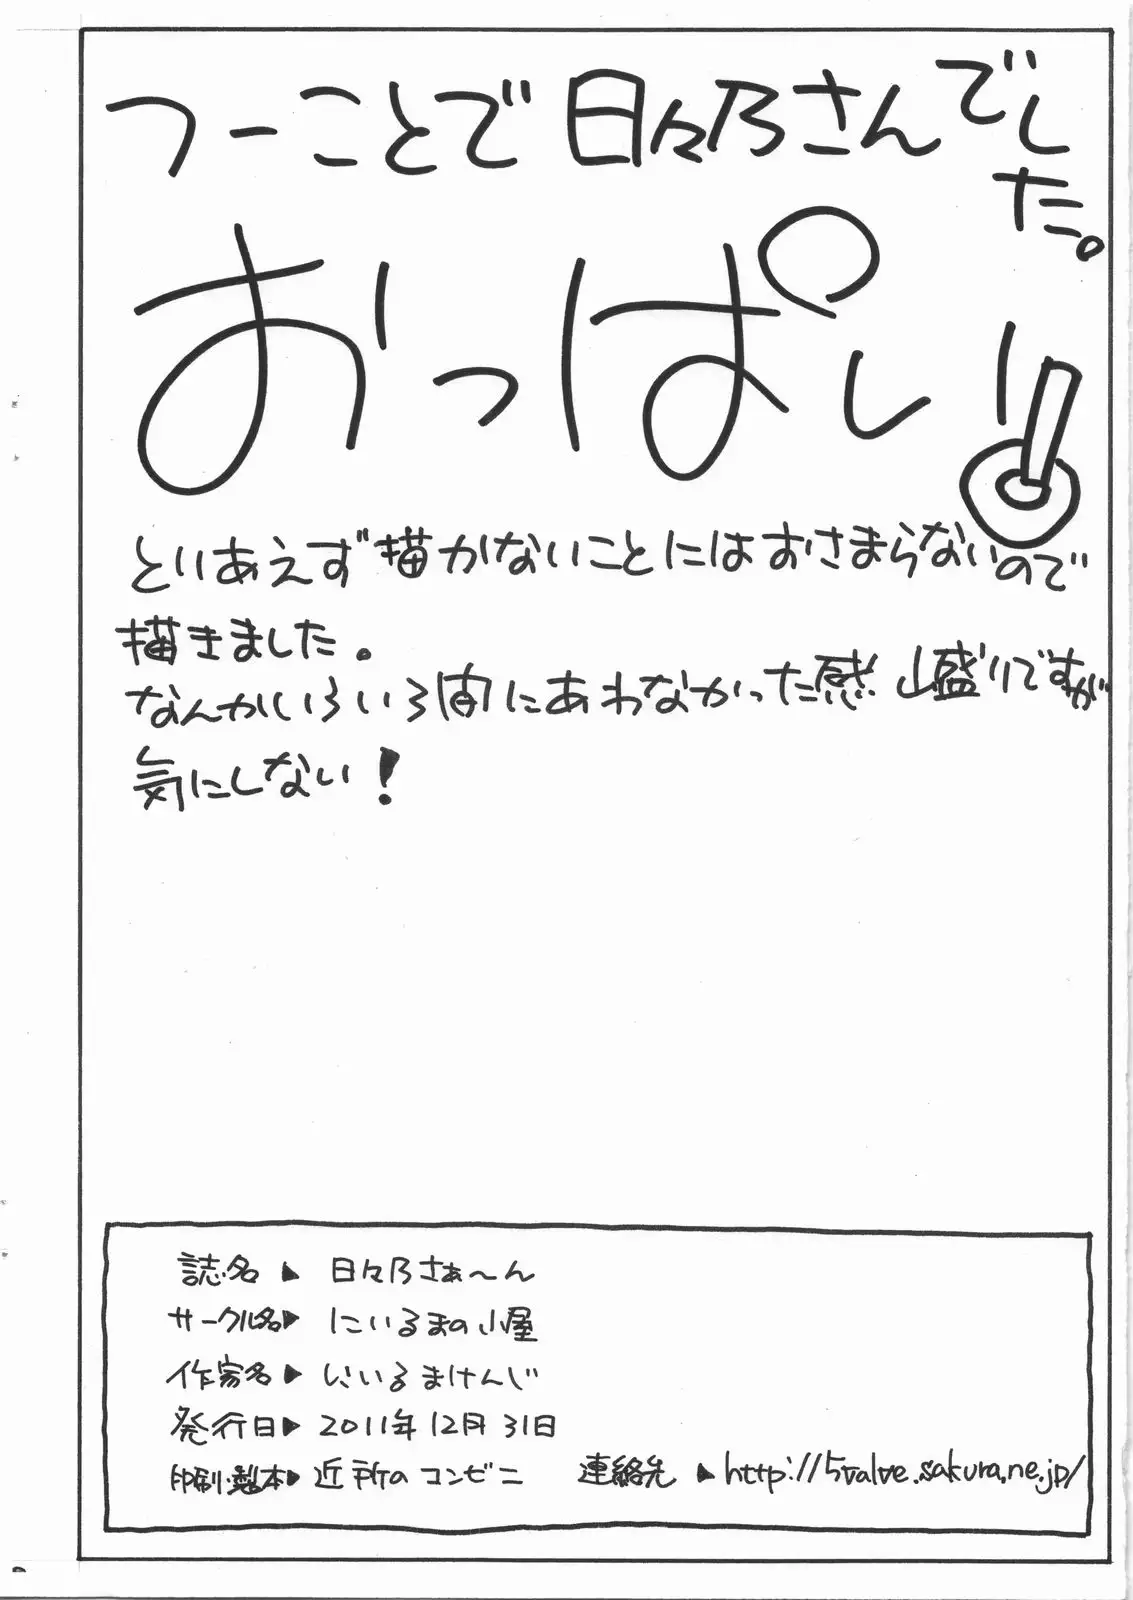 つーことで日々乃さんでした。
おっぱい!!
とりあえず描かないことにはおさまらないので
描きました。
なんかいろいろ間にあわなかった感山盛りですが
気にしない!
誌名▶日々乃さぁ〜ん
サークル名▶にいるまの小屋
作家名▶にいるまけんじ
発行日▶2011年12月31日
印刷・製本▶近所のコンビニ 連絡先▶http://5valve.sakura.ne.jp/